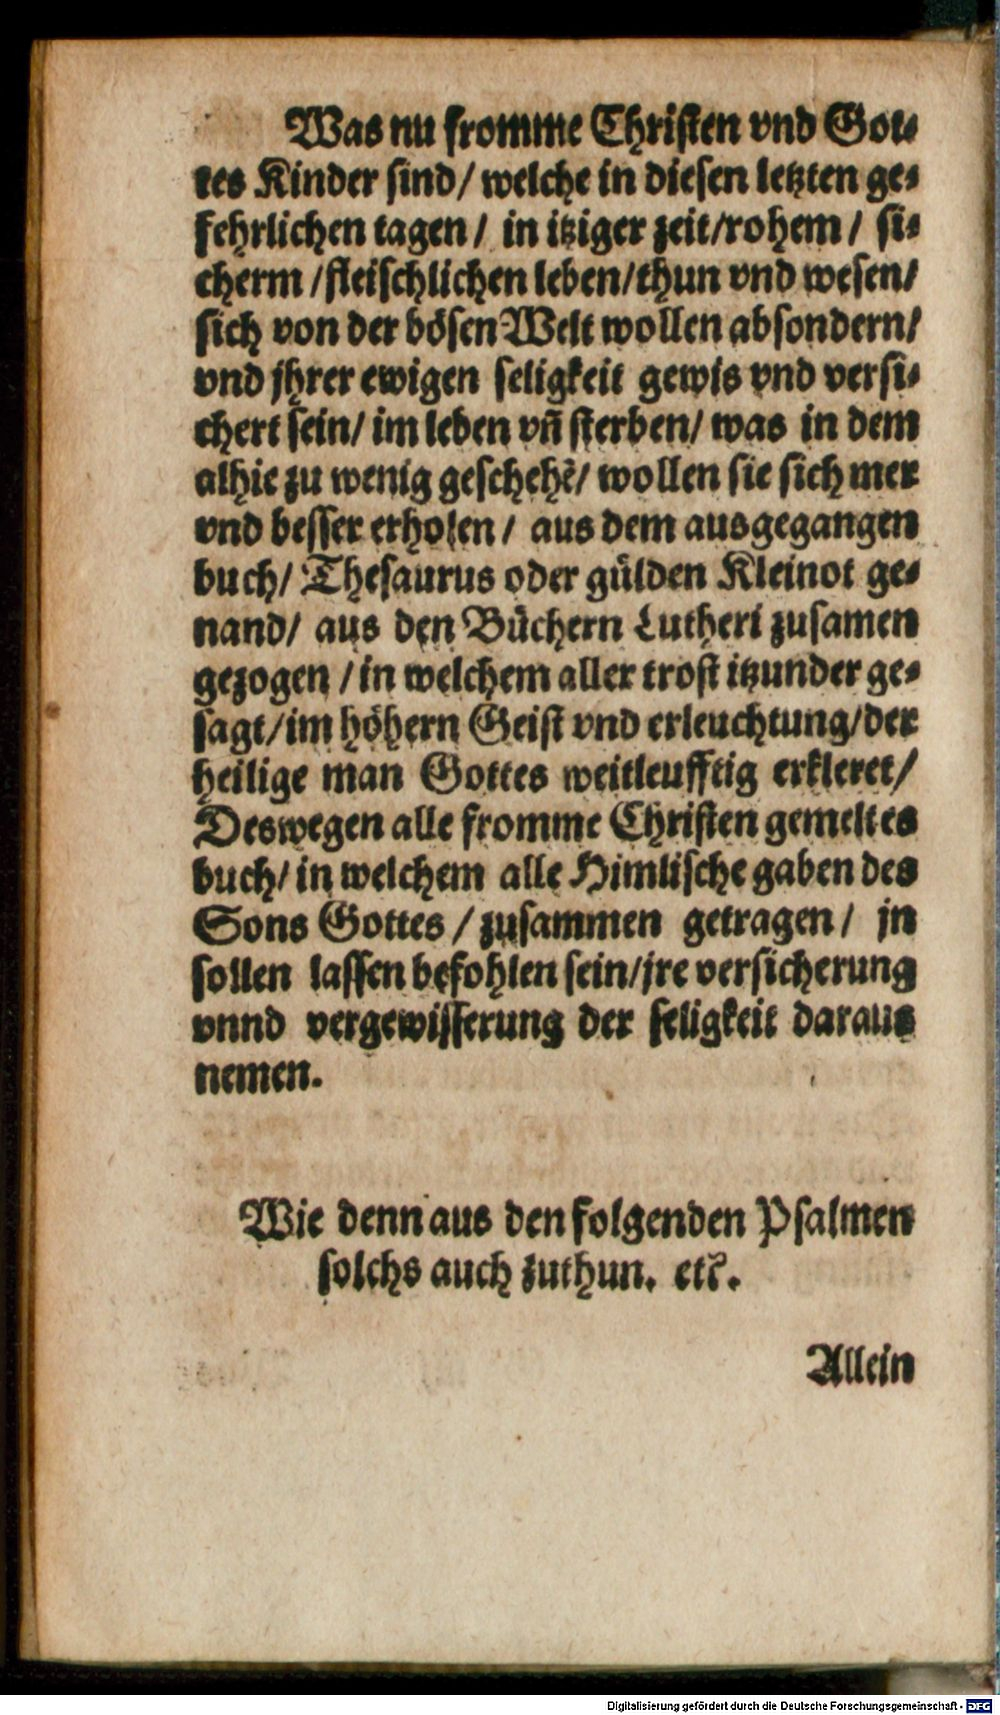 Was nu fromme Christen vnd Got-
tes Kinder sind/ welche in diesen letzten ge-
fehrlichen tagen/ in itziger zeit/rohem/ si-
cherm /fleischlichen leben/thun vnd wesen/
sich von der bösen Welt wollen absondern/
vnd jhrer ewigen seligkeit gewis vnd versi-
chert sein/ im leben vñ sterben/ was in dem
alhie zu wenig geschehẽ/ wollen sie sich mer
vnd besser erholen/ aus dem ausgegangen
buch/ Thesaurus oder gülden Kleinot ge-
nand/ aus den Büchern Lutheri zusamen
gezogen /in welchem aller trost itzunder ge-
sagt/im höhern Geist vnd erleuchtung/der
heilige man Gottes weitleufftig erkleret/
Deswegen alle fromme Christen gemeltes
buch/ in welchem alle Himlische gaben des
Sons Gottes / zusammen getragen/ jn
sollen lassen befohlen sein/jre versicherung
vnnd vergewisserung der seligkeit daraus
nemen.
Wie denn aus den folgenden Psalmen
solchs auch zuthun. etc.
Allein
Digitalisierung gefördert durch die Deutsche Forschungsgemeinschaft - DFG